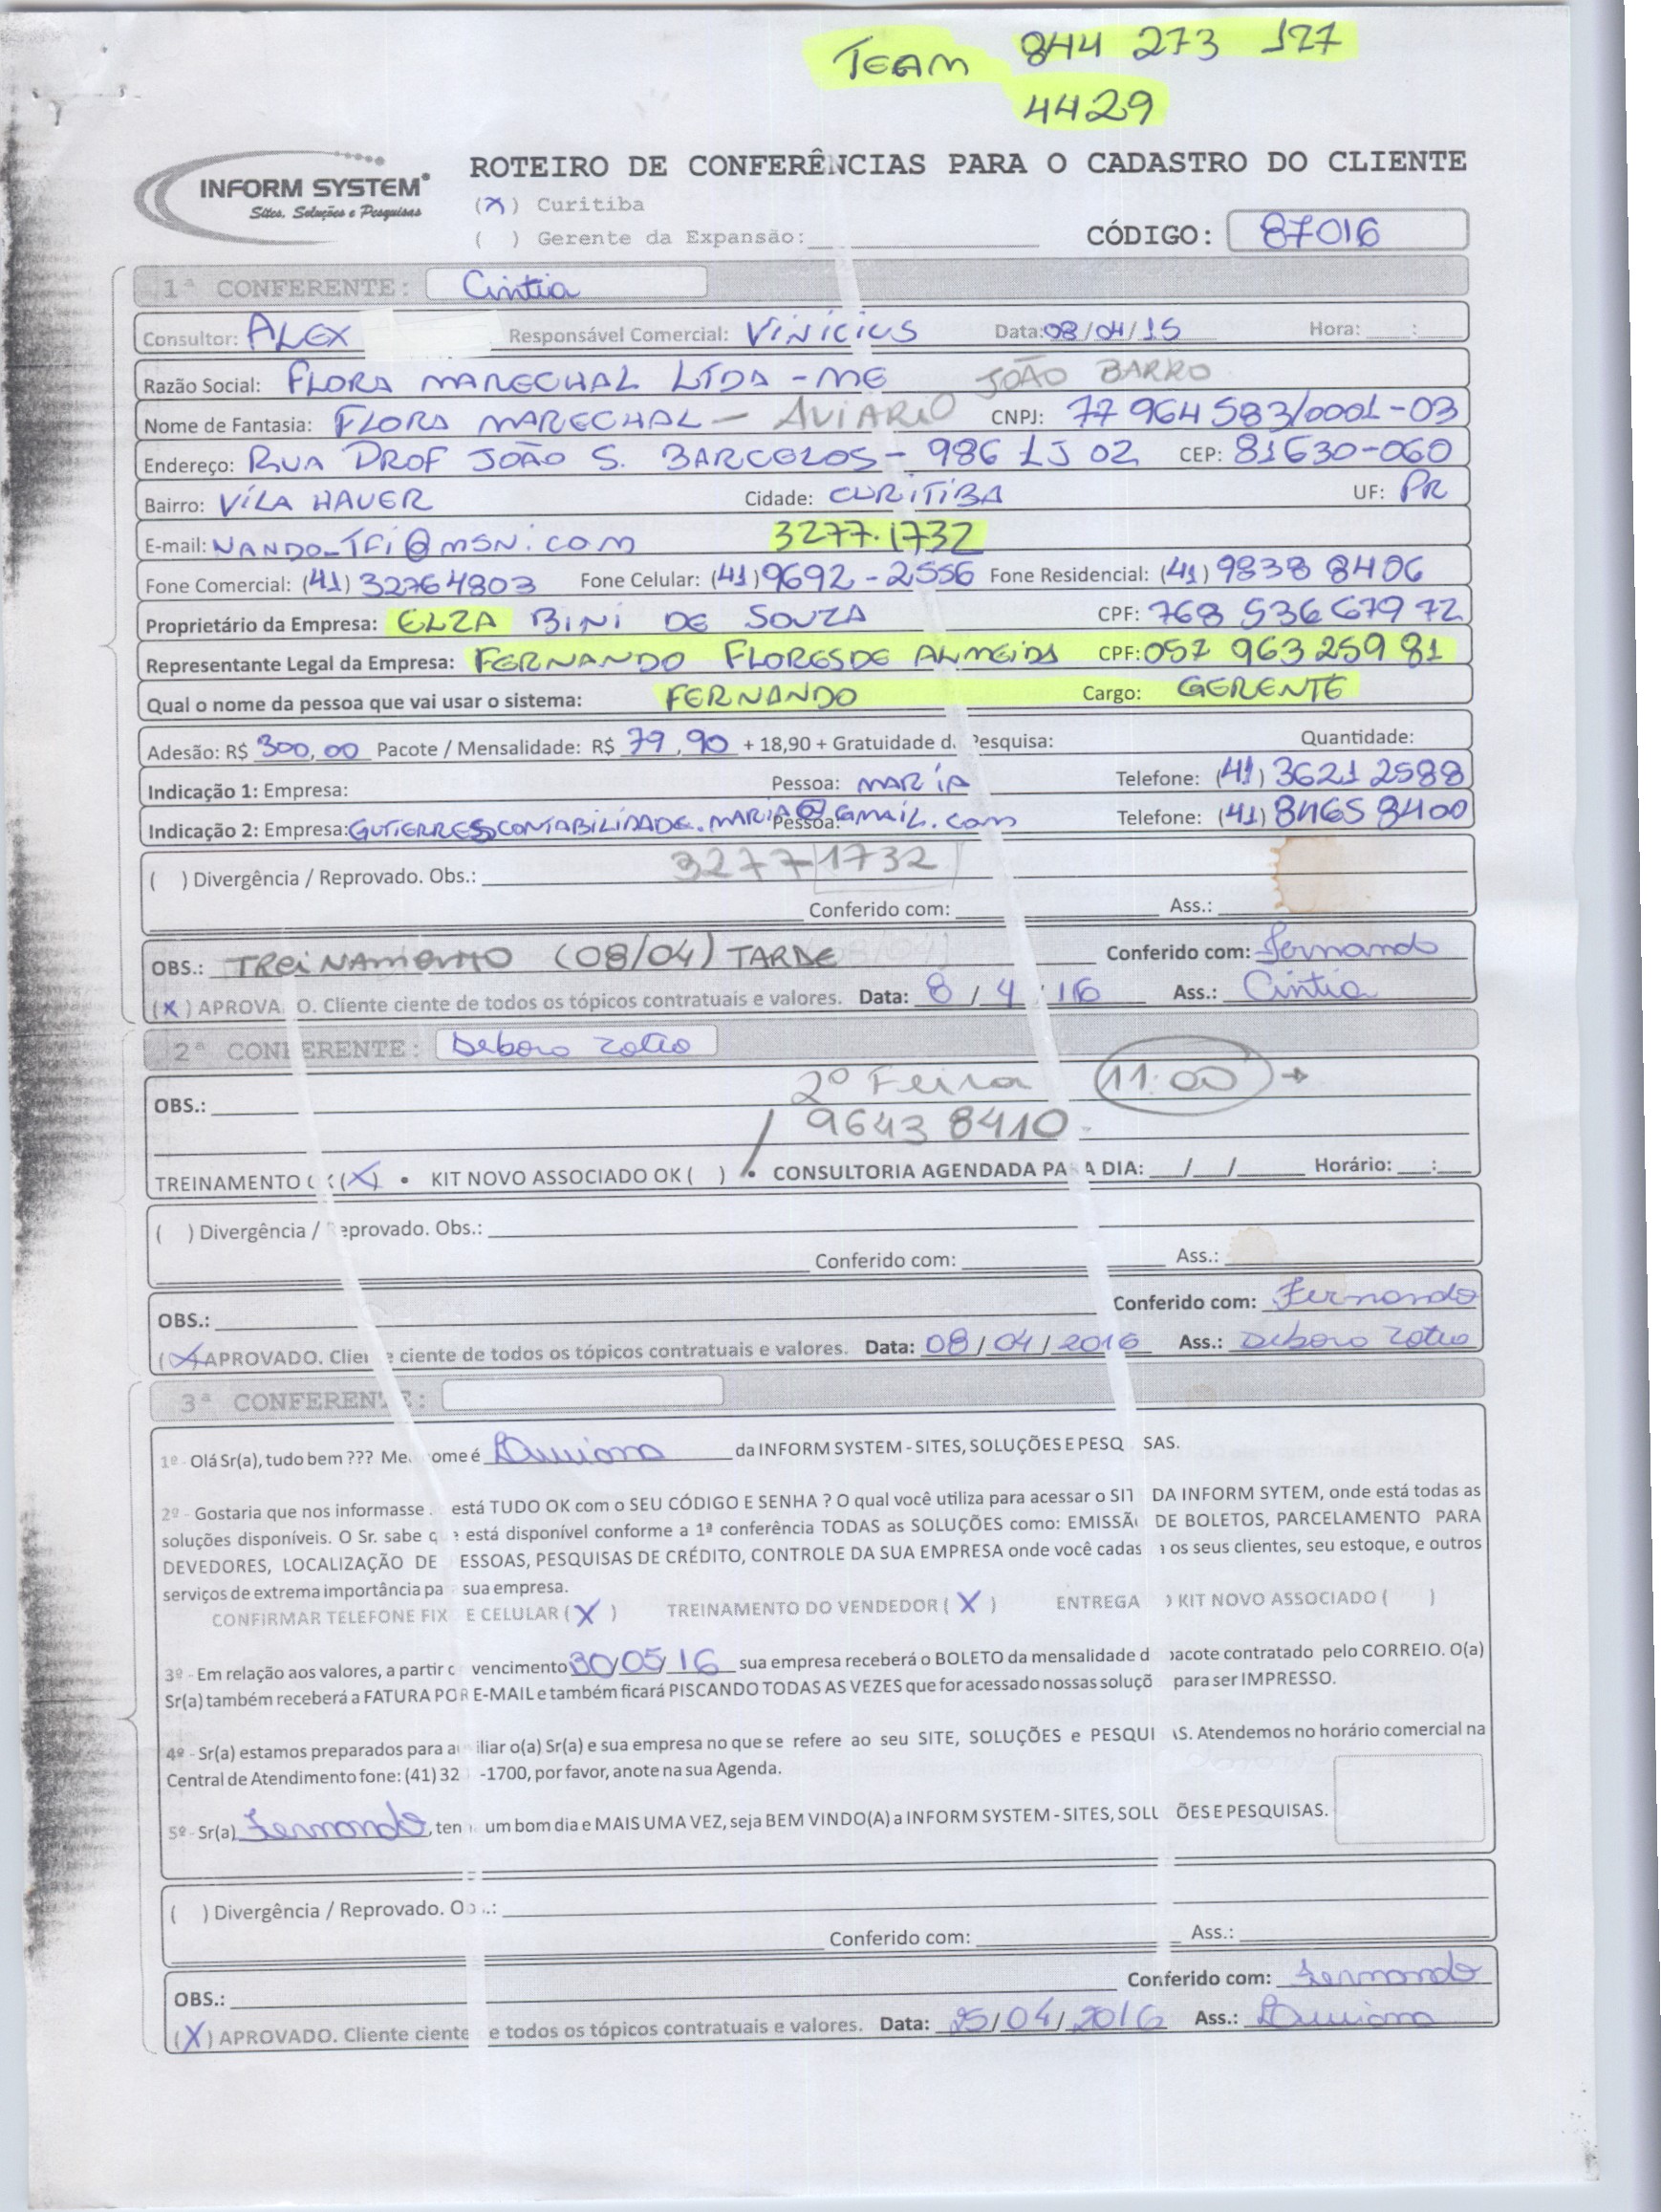 TEAM 844 273 127
4429
INFORM SYSTEM
Sites, Soluções e Pesquisas
ROTEIRO DE CONFERÊNCIAS PARA O CADASTRO DO CLIENTE
(X) Curitiba
( ) Gerente da Expansão:
CÓDIGO: 87016
1ª CONFERENTE: Cintia
Consultor: ALEX Responsável Comercial: VINICIUS Data: 08/04/15 Hora: :
Razão Social: FLORA MARECHAL LTDA - ME JOÃO BARRO
Nome de Fantasia: FLORA MARECHAL - AVIARIO CNPJ: 77 964 583/0001-03
Endereço: RUA PROF JOÃO S. BARCELOS - 986 LJ 02 CEP: 81630-060
Bairro: VILA HAUER Cidade: CURITIBA UF: PR
E-mail: NANDO_TFI@MSN.COM 3277.1732
Fone Comercial: (41) 32764803 Fone Celular: (41) 9692-2556 Fone Residencial: (41) 9838 8406
Proprietário da Empresa: ELZA BINI DE SOUZA CPF: 768 536 679 72
Representante Legal da Empresa: FERNANDO FLORES DE ALMEIDA CPF: 057 963 259 81
Qual o nome da pessoa que vai usar o sistema: FERNANDO Cargo: GERENTE
Adesão: R$ 300,00 Pacote / Mensalidade: R$ 79,90 + 18,90 + Gratuidade d Pesquisa: Quantidade:
Indicação 1: Empresa: Pessoa: MARIA Telefone: (41) 3621 2588
Indicação 2: Empresa: GUTIERRESCONTABILIDADE.MARIA@GMAIL.COM Pessoa: Telefone: (41) 8465 8400
3277 1732
( ) Divergência / Reprovado. Obs.:
Conferido com: Ass.:
OBS.: TREINAMENTO (08/04) TARDE Conferido com: Fernando
(X) APROVA O. Cliente ciente de todos os tópicos contratuais e valores. Data: 8/4/16 Ass.: Cintia
2ª CONFERENTE: Debora
2º Feira 11:00 →
OBS.:
96438410
TREINAMENTO OK (X) • KIT NOVO ASSOCIADO OK ( ) • CONSULTORIA AGENDADA PARA DIA: / / Horário: :
( ) Divergência / Reprovado. Obs.:
Conferido com: Ass.:
OBS.: Conferido com: Fernando
(X) APROVADO. Clien e ciente de todos os tópicos contratuais e valores. Data: 08/04/2016 Ass.: Debora
3ª CONFERENTE:
1º - Olá Sr(a), tudo bem ??? Me ome é da INFORM SYSTEM - SITES, SOLUÇÕES E PESQ SAS.
2º - Gostaria que nos informasse está TUDO OK com o SEU CÓDIGO E SENHA ? O qual você utiliza para acessar o SIT DA INFORM SYTEM, onde está todas as
soluções disponíveis. O Sr. sabe q e está disponível conforme a 1ª conferência TODAS as SOLUÇÕES como: EMISSÃ DE BOLETOS, PARCELAMENTO PARA
DEVEDORES, LOCALIZAÇÃO DE ESSOAS, PESQUISAS DE CRÉDITO, CONTROLE DA SUA EMPRESA onde você cadas a os seus clientes, seu estoque, e outros
serviços de extrema importância pa sua empresa.
CONFIRMAR TELEFONE FIX E CELULAR (X) TREINAMENTO DO VENDEDOR (X) ENTREGA O KIT NOVO ASSOCIADO ( )
3º - Em relação aos valores, a partir d vencimento 30/05/16 sua empresa receberá o BOLETO da mensalidade d pacote contratado pelo CORREIO. O(a)
Sr(a) também receberá a FATURA POR E-MAIL e também ficará PISCANDO TODAS AS VEZES que for acessado nossas soluçõ para ser IMPRESSO.
4º - Sr(a) estamos preparados para au iliar o(a) Sr(a) e sua empresa no que se refere ao seu SITE, SOLUÇÕES e PESQUI AS. Atendemos no horário comercial na
Central de Atendimento fone: (41) 32 -1700, por favor, anote na sua Agenda.
5º - Sr(a) Fernando, ten um bom dia e MAIS UMA VEZ, seja BEM VINDO(A) a INFORM SYSTEM - SITES, SOLU ÕES E PESQUISAS.
( ) Divergência / Reprovado. O .:
Conferido com: Ass.:
OBS.: Conferido com: Fernando
(X) APROVADO. Cliente ciente e todos os tópicos contratuais e valores. Data: 25/04/2016 Ass.: